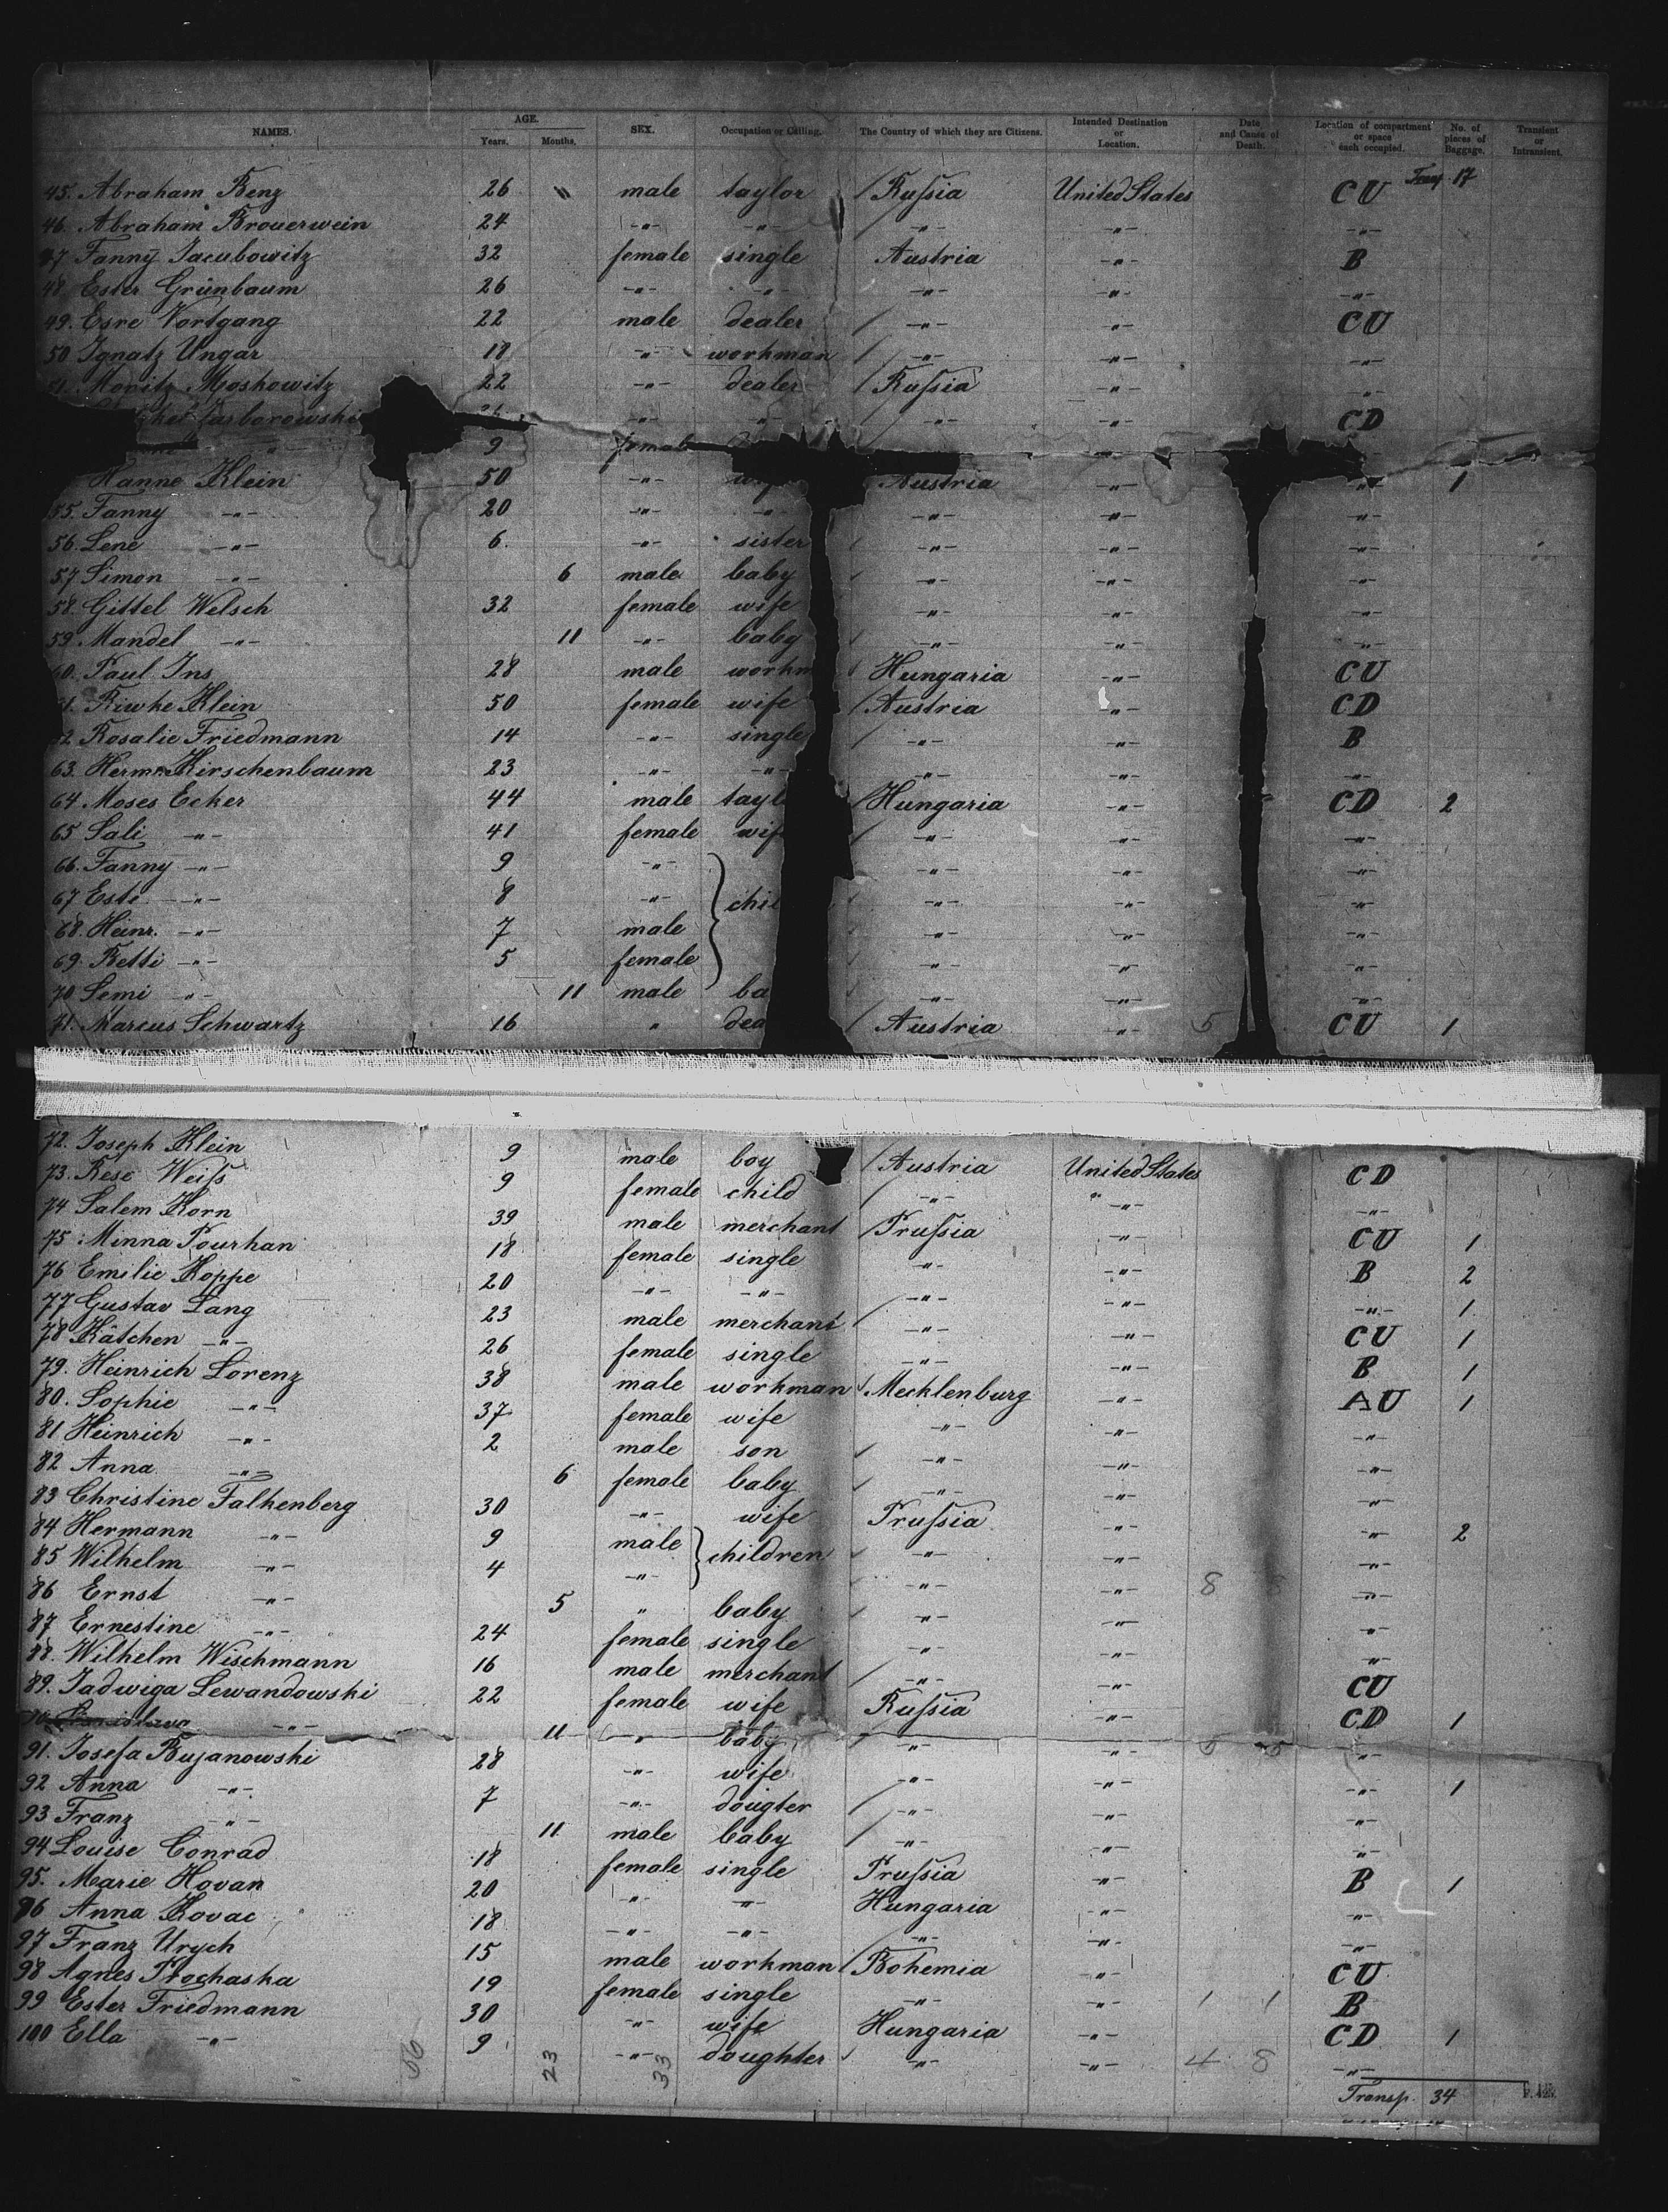 NAMES. AGE. Years. Months. SEX. Occupation or Calling. The Country of which they are Citizens. Intended Destination or Location. Date and Cause of Death. Location of compartment or space each occupied. No. of pieces of Baggage. Transient or Intransient.
Transp. 17
45. Abraham Benz 26 " male taylor / Russia United States CU
46. Abraham Brouerwein 24 -"- -"- / -"- -"- -"-
47 Fanny Jacubowitz 32 female single Austria -"- B
48. Ester Grünbaum 26 -"- -"- -"- -"- -"-
49. Esre Vortgang 22 male dealer / -"- -"- CU
50 Ignatz Ungar 18 -"- workman / -"- -"- -"-
51. Moritz Moskowitz 22 -"- dealer / Russia -"- -"-
-"- -"- / -"- -"- CD
" 9 female -"-
Hanne Klein 50 -"- Austria -"- -"- 1
55. Fanny -"- 20 -"- -"- -"- -"- -"-
56. Lene -"- 6. -"- sister / -"- -"- -"-
57 Simon -"- 6 male baby / -"- -"- -"-
58. Gittel Welsch 32 female wife -"- -"- -"-
59. Mandel -"- 11 -"- baby / -"- -"- -"-
60. Paul Ins 28 male workm / Hungaria -"- CU
61. Riwke Klein 50 female wife / Austria -"- CD
62. Rosalie Friedmann 14 -"- single / -"- -"- B
63. Herm. Hirschenbaum 23 -"- -"- -"- -"- -"-
64. Moses Ecker 44 male tayl / Hungaria -"- CD 2
65 Sali -"- 41 female wif / -"- -"- -"-
66. Fanny -"- 9 -"- -"- -"- -"-
67 Esti -"- 8 -"- chil -"- -"- -"-
68. Heinr. -"- 7 male -"- -"- -"-
69. Betti -"- 5 female -"- -"- -"-
70 Semi -"- 11 male ba -"- -"- -"-
71. Marcus Schwartz 16 " dea / Austria -"- 5 CU 1
72. Joseph Klein 9 male boy / Austria United States CD
73. Rese Weiss 9 female child / -"- -"- -"-
74 Salem Korn 39 male merchant / Prussia -"- CU 1
75 Minna Pourhan 18 female single -"- -"- B 2
76 Emilie Koppe 20 -"- -"- -"- -"- -"- 1
77 Gustav Lang 23 male merchant / -"- -"- CU 1
78 Kätchen -"- 26 female single -"- -"- B 1
79. Heinrich Lorenz 38 male workman / Mecklenburg -"- AU 1
80. Sophie -"- 37 female wife -"- -"- -"-
81 Heinrich -"- 2 male son / -"- -"- -"-
82 Anna -"- 6 female baby / -"- -"- -"-
83 Christine Falkenberg 30 -"- wife Prussia -"- -"- 2
84 Hermann -"- 9 male children / -"- -"- -"-
85 Wilhelm -"- 4 -"- / -"- -"- 8 -"-
86 Ernst -"- 5 " baby / -"- -"- -"-
87 Ernestine -"- 24 female single -"- -"- -"-
88. Wilhelm Wischmann 16 male merchant / -"- -"- CU
89. Jadwiga Lewandowski 22 female wife Russia -"- CD 1
-"- 11 -"- baby / -"- -"- -"-
91. Josefa Bujanowski 28 -"- wife -"- -"- -"- 1
92 Anna -"- 7 -"- dougter / -"- -"- -"-
93 Franz -"- 11 male baby / -"- -"- -"-
94 Louise Conrad 18 female single Prussia -"- B 1
95. Marie Hovan 20 -"- -"- Hungaria -"- -"-
96 Anna Kovac 18 -"- -"- -"- -"- -"-
97 Franz Urych 15 male workman / Bohemia -"- CU
98 Agnes Prochaska 19 female single -"- -"- 1 1 B
99 Ester Friedmann 30 -"- wife Hungaria -"- CD 1
100 Ella -"- 9 -"- doughter / -"- -"- 4 8 -"-
66 23 33
Transp. 34